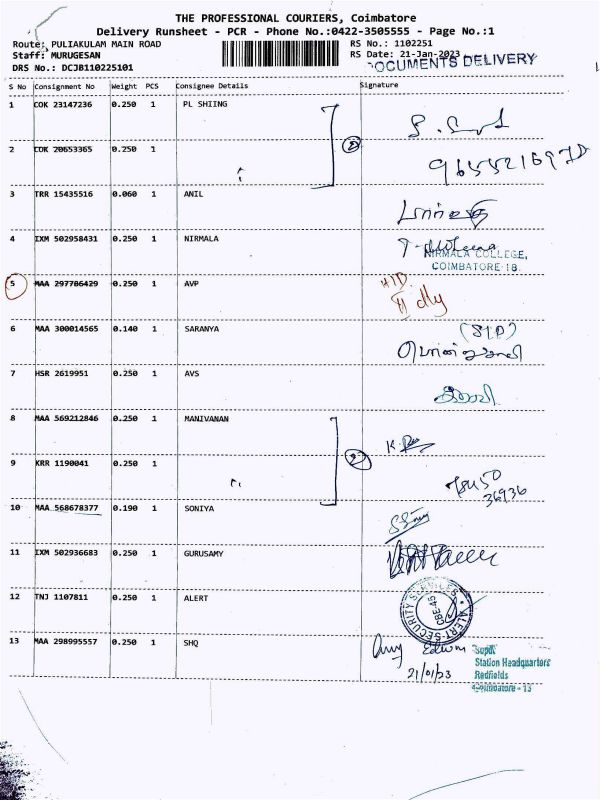 THE PROFESSIONAL COURIERS, Coimbatore
Delivery Runsheet - PCR - Phone No.:0422-3505555 - Page No.:1
Route: PULIAKULAM MAIN ROAD
RS No.: 1102251
Staff: MURUGESAN
RS Date: 21-Jan-2023
DRS No.: DCJB110225101
DOCUMENTS DELIVERY
S No Consignment No Weight PCS Consignee Details Signature
1 COK 23147236 0.250 1 PL SHIING
2 COK 20653365 0.250 1
2
3 TRR 15435516 0.060 1 ANIL
4 IXM 502958431 0.250 1 NIRMALA
NIRMALA COLLEGE,
COIMBATORE-18.
5 MAA 297786429 0.250 1 AVP
6 MAA 300014565 0.140 1 SARANYA
7 HSR 2619951 0.250 1 AVS
8 MAA 569212846 0.250 1 MANIVANAN
9 KRR 1190041 0.250 1
2
36936
10 MAA 568678377 0.190 1 SONIYA
11 IXM 502936683 0.250 1 GURUSAMY
12 TNJ 1107811 0.250 1 ALERT
ALERT SECURITY SERVICES
CBE-45
13 MAA 298995557 0.250 1 SHQ
21/01/23
Supdt
Station Headquarters
Redfields
Coimbatore - 18